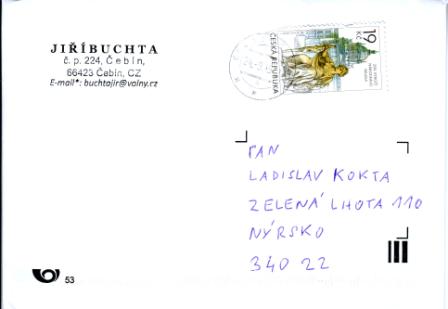 JIŘÍBUCHTA
č. p. 224, Čebín,
66423 Čebín, CZ
E-mail*: buchtajir@volny.cz
19
Kč
ČESKÁ REPUBLIKA
PAN
LADISLAV KOKTA
ZELENÁ LHOTA 110
NÝRSKO
340 22
53